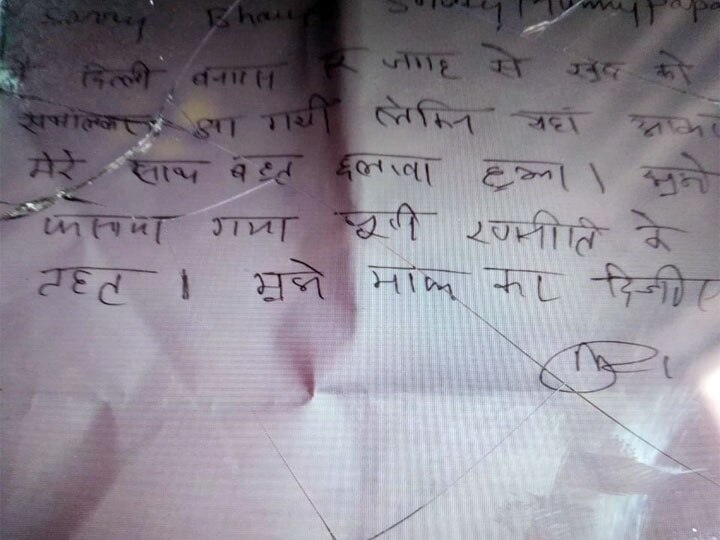 Sorry Bhaiya Sorry Mummy Papa
मैं दिल्ली बनारस हर जगह से खुद को
संभालकर आ गयी लेकिन यहां आकर
मेरे साथ बहुत छलावा हुआ । मुझे
फंसाया गया पूरी रणनीति के
तहत । मुझे माफ कर दिजीए